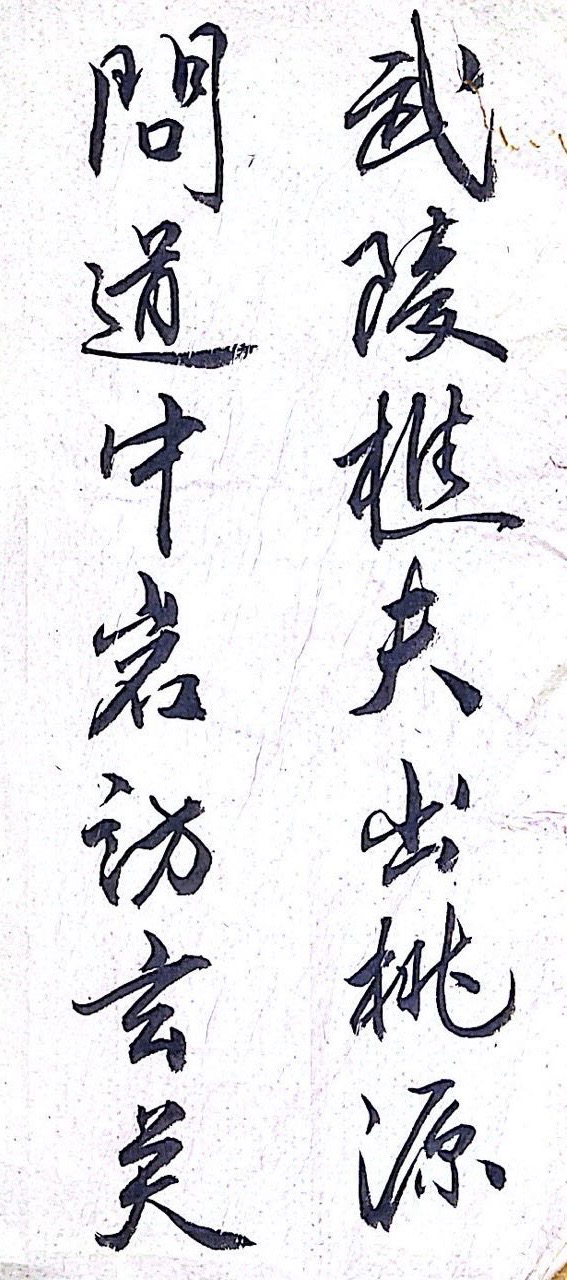 武陵樵夫出桃源
問道中岩訪玄关